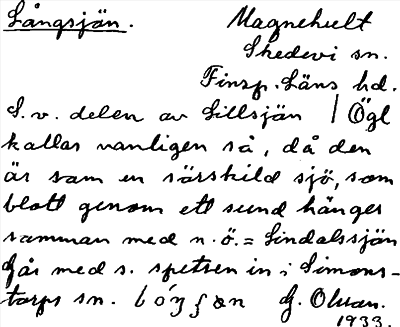 Långsjön. Magnehult
Skedevi sn.
Finsp. Läns hd.
S.v. delen av Lillsjön / Ögl
kallas vanligen så, då den
är som en särskild sjö, som
blott genom ett sund hänger
samman med n.ö. = Lindalssjön
Går med s. spetsen in i Simons-
torps sn. G. Olsson.
1933.